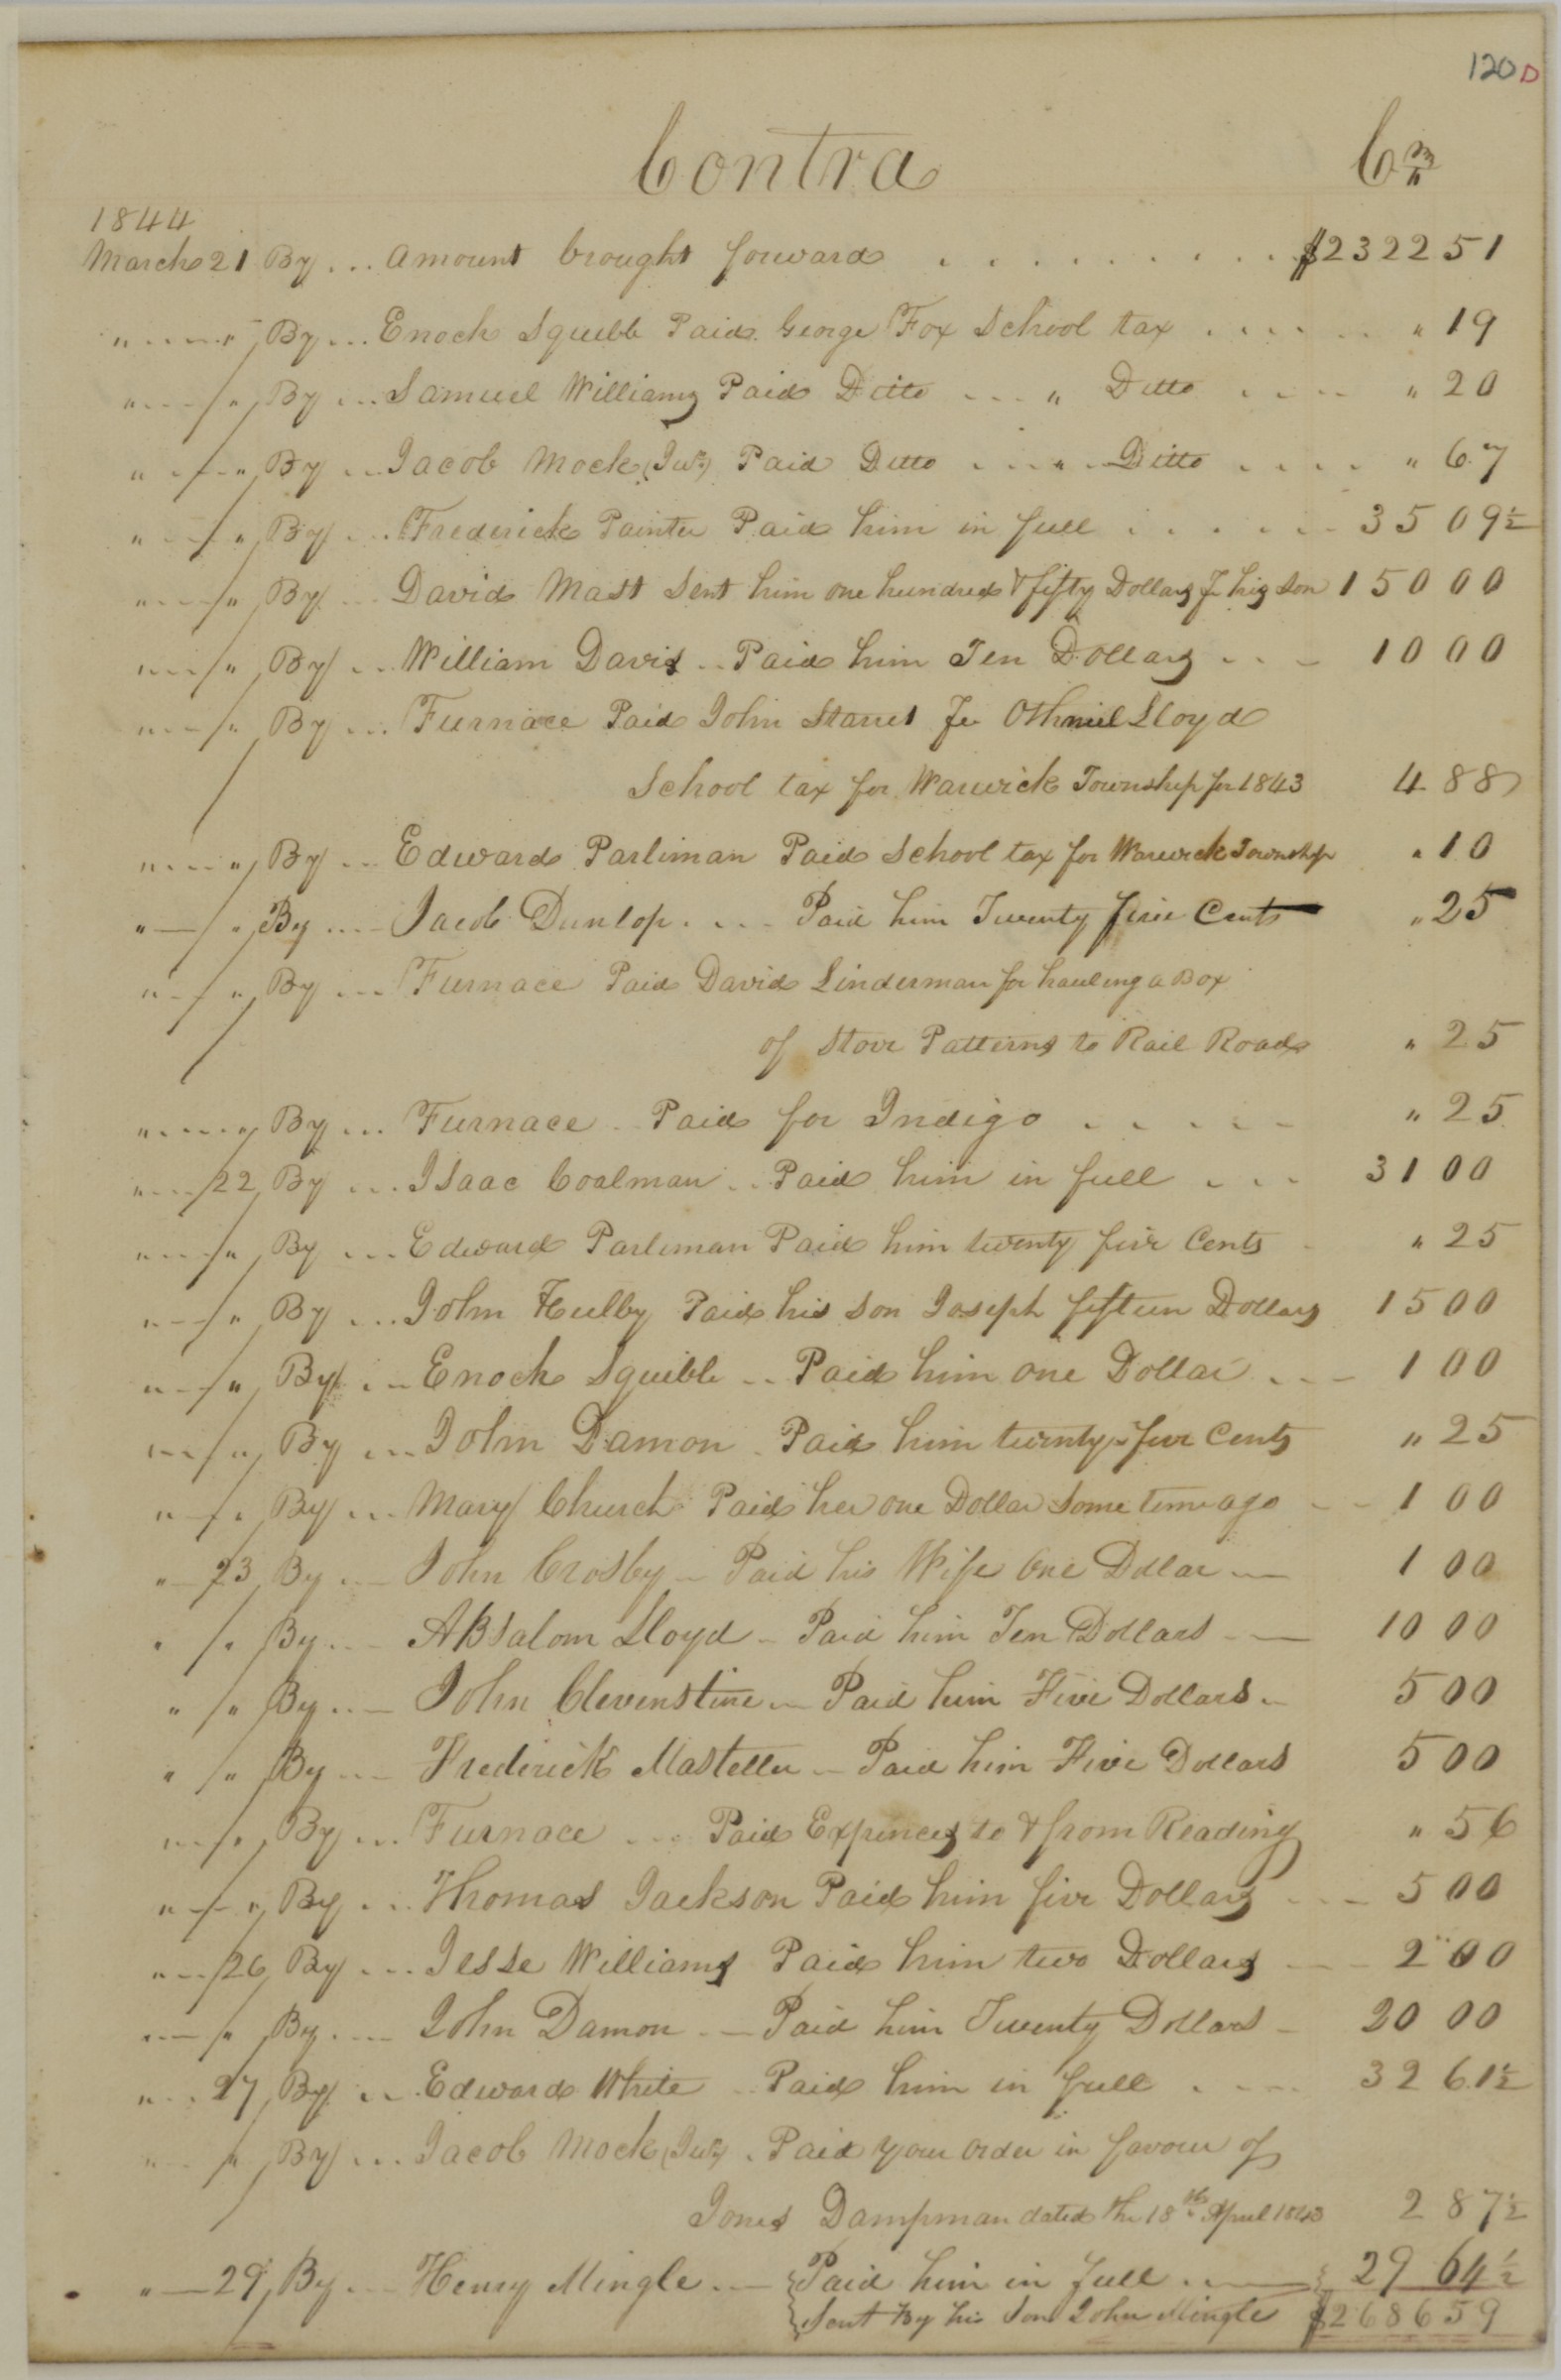 120 D
Contra Cr
1844
March 21 By ... Amount brought forward . . . . . . . . . $2322 51
" " By ... Enoch Squibb Paid George Fox School tax . . . . " 19
" " By ... Samuel Williams Paid Ditto ... " Ditto . . . . " 20
" " By ... Jacob Mock (Junr) Paid Ditto ... " Ditto . . . . " 67
" " By ... Frederick Painter Paid him in full . . . . . . 35 09½
" " By ... David Mast Sent him one hundred & fifty Dollars pr his son 150 00
" " By ... William Davis .. Paid him Ten Dollars . . . 10 00
" " By ... Furnace Paid John Starret for Othniel Lloyd
School tax for Warwick Township for 1843 4 88
" " By ... Edward Parliman Paid School tax for Warwick Township " 10
" " By ... Jacob Dunlop . . . Paid him Twenty five Cents " 25
" " By ... Furnace Paid David Linderman for hauling a Box
of Stove Patterns to Rail Road " 25
" " By ... Furnace .. Paid for Indigo . . . . . " 25
" 22 By ... Isaac Coalman .. Paid him in full . . . 31 00
" " By ... Edward Parliman Paid him twenty five Cents " 25
" " By ... John Hulby Paid his son Joseph fifteen Dollars 15 00
" " By ... Enoch Squibb .. Paid him one Dollar . . . 1 00
" " By ... John Damon .. Paid him twenty five Cents " 25
" " By ... Mary Church Paid her one Dollar some time ago - - 1 00
" 23 By ... John Crosby - Paid his Wife One Dollar — 1 00
" " By ... ABsalom Lloyd - Paid him Ten Dollars - — 10 00
" " By ... John Clevenstine - Paid him Five Dollars - 5 00
" " By ... Frederick Masteller - Paid him Five Dollars 5 00
" " By ... Furnace ... Paid Expences to & from Reading " 56
" " By ... Thomas Jackson Paid him five Dollars - - 5 00
" 26 By ... Jesse Williams Paid him two Dollars - - 2 00
" " By ... John Damon - Paid him Twenty Dollars - 20 00
" 27 By ... Edward White .. Paid him in full . . . . 32 61½
" " By ... Jacob Mock (Junr) . Paid your order in favour of
Jones Dampman dated the 18th April 1843 2 87½
" 29 By ... Henry Mingle . — Paid him in full . — 29 64½
Sent By his Son John Mingle $2686 59